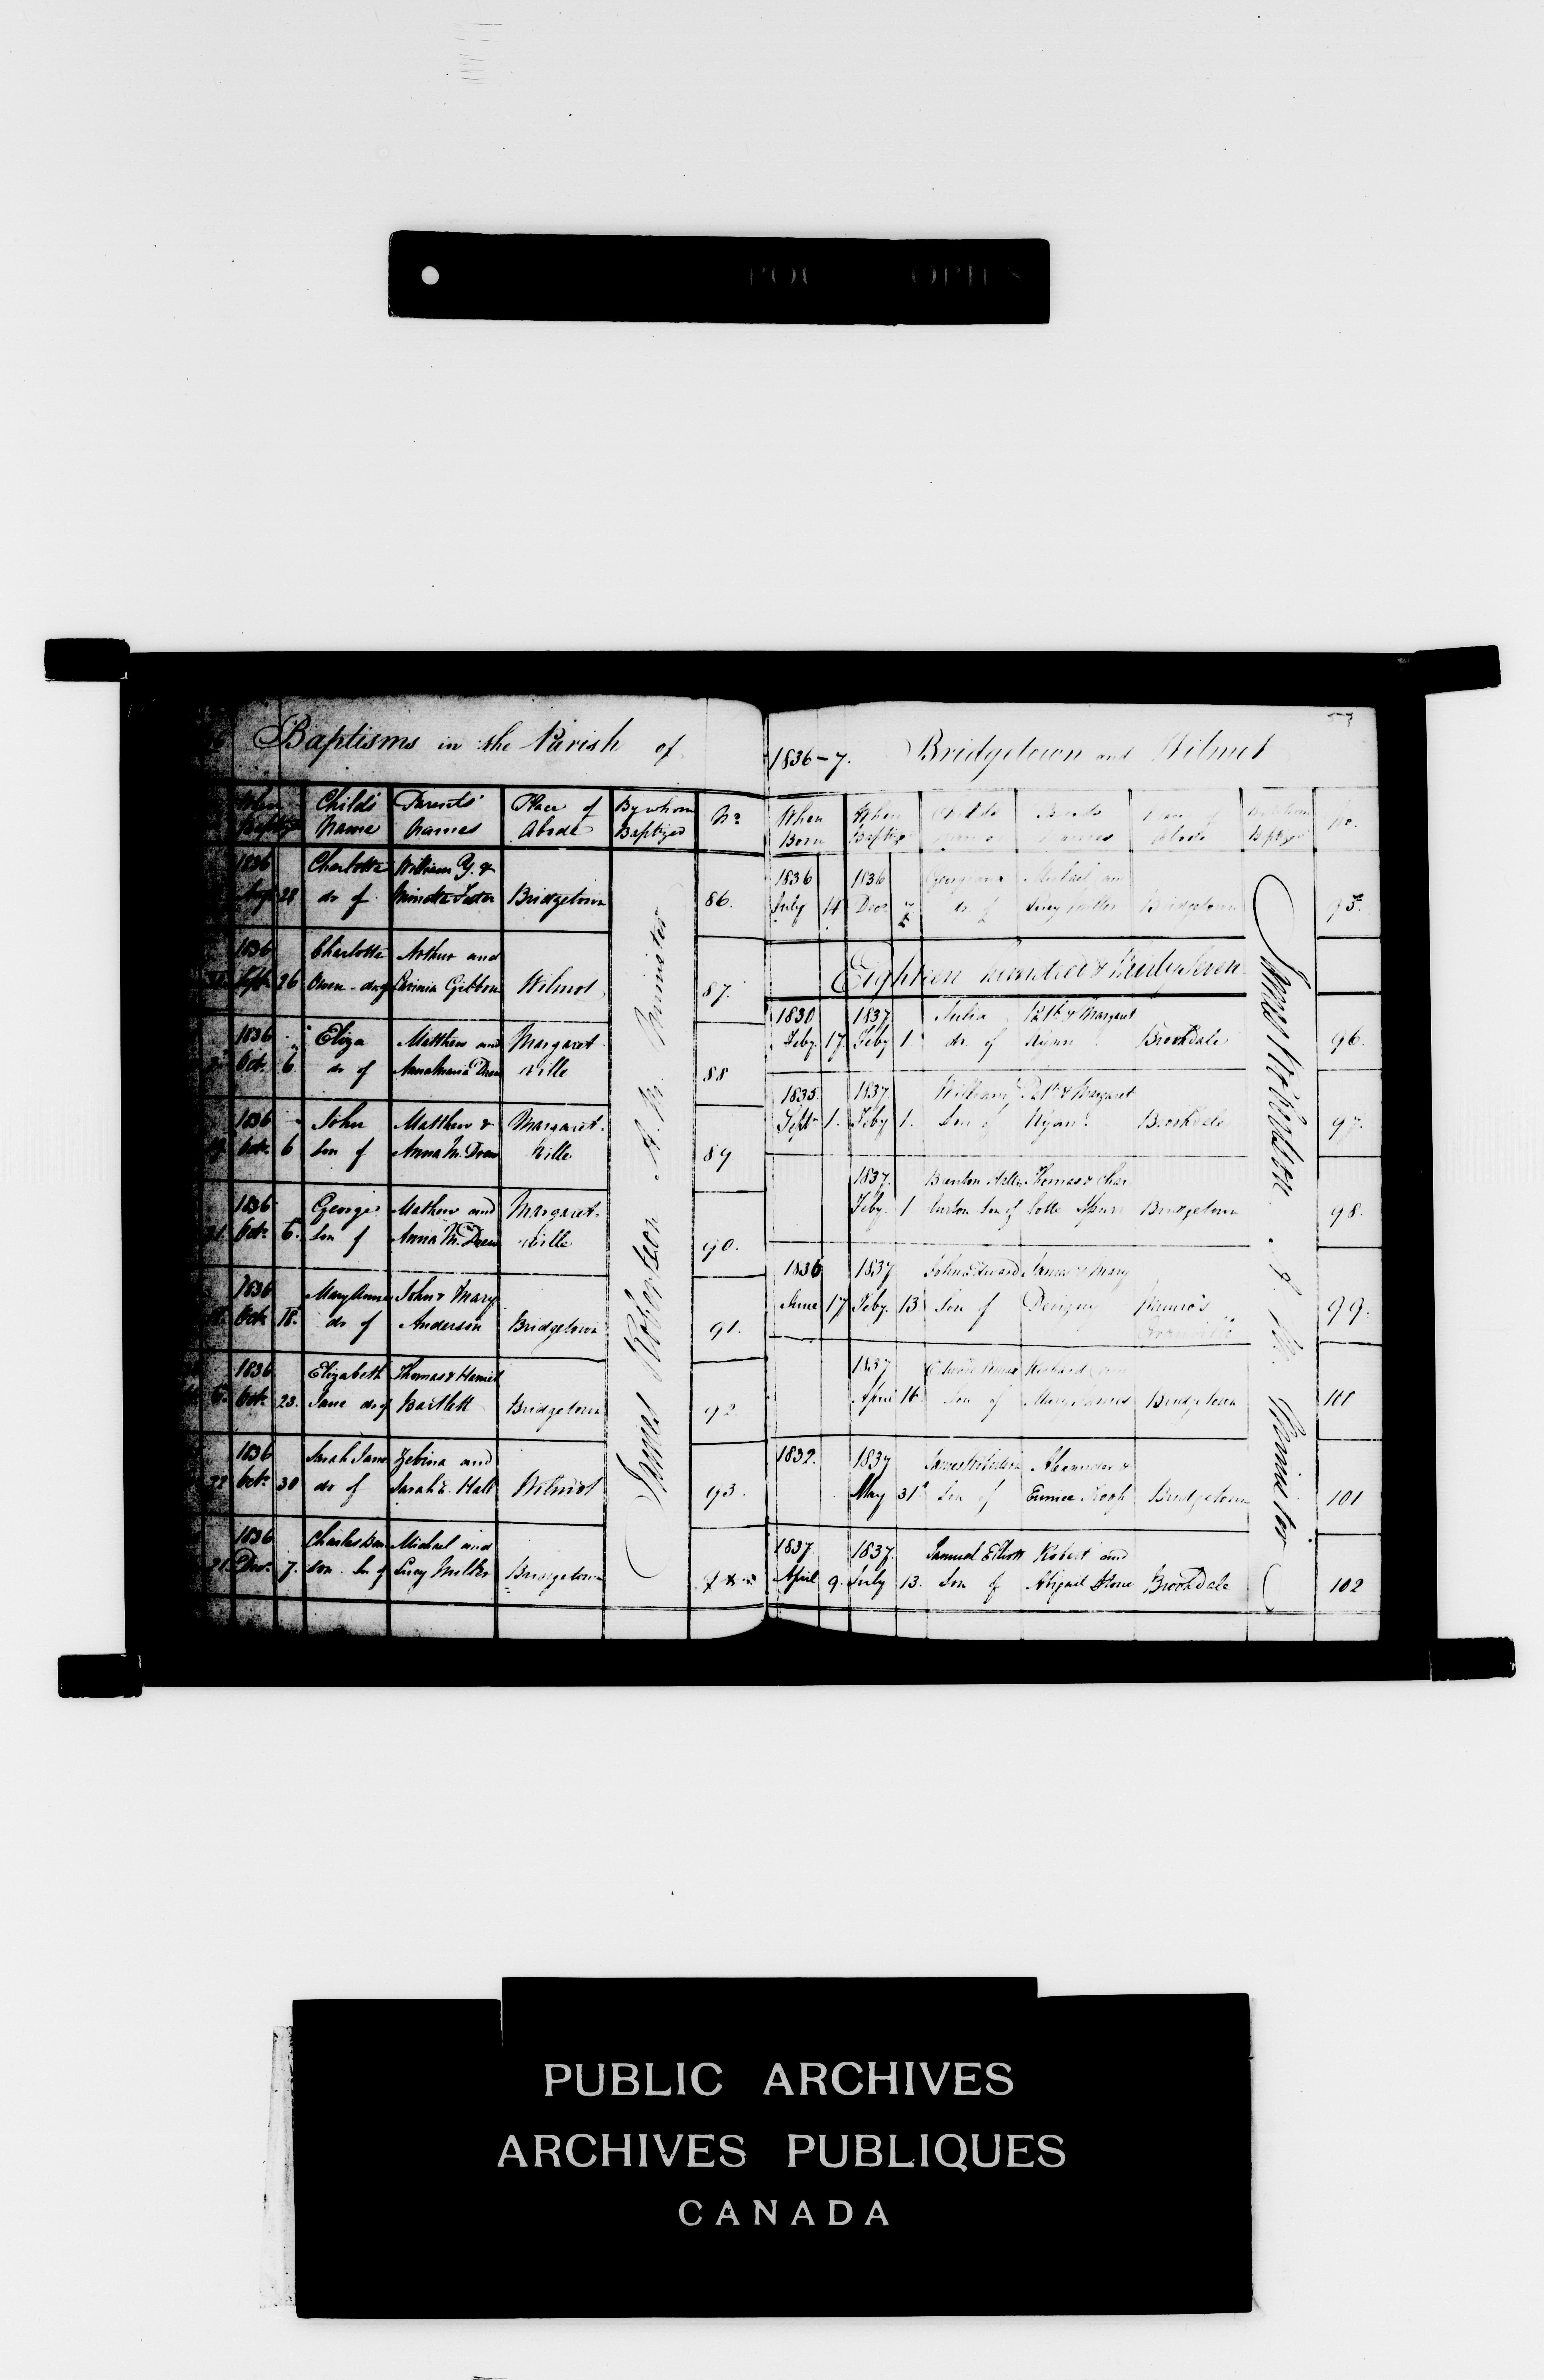 Baptisms in the Parish of
Child's Parents' Place of By whom No
Name Names Abode Baptized
1836 Charlotte William Y. &
28 dr of Foster Bridgetown 86.
1836 Charlotte Arthur and
Sept 26 Owen - dr of Lavinia Gibbon Wilmot 87.
1836 Eliza Matthew and Margaret
Oct. 6 dr of Annamaria Drew ville 88
1836 John Matthew & Margaret.
Oct. 6 Son of Anna M. Drew ville 89
1836 George Mathew and Margaret.
Oct. 6 Son of Anna M. Drew ville 90.
1836 Mary Anne John & Mary
Oct. 18 dr of Anderson Bridgetown 91.
1836 Elizabeth Thomas & Harriet
Oct. 23. Jane dr of Bartlett Bridgetown 92
1836 Sarah Jane Zebina and
Oct. 30 dr of Sarah E. Hall Wilmot 93.
1836 Charles Michael and
7. Son of Lucy Bridgetown
James Robertson A. M. Minister
53
1836-7. Bridgetown and Wilmot
When When Child's
Born Baptized Names Abode No.
1836 1836 Georgiana Michael and
July 14 Decr dr of Lucy Bridgetown 95.
Eighteen hundred & Thirty Seven
1830 1837 Julia & Margaret
Feby. 17. Feby 1 dr of Ryan Brookdale 96.
1835. 1837. William & Margaret
Septr 1. Feby 1. Son of Ryan Brookdale 97.
1837. Thomas & Char
Feby. 1 Son of lotte Bridgetown 98.
1836 1837 John Edward James & Mary
June 17 Feby. 13 Son of Munro's 99.
Granville
1837 Richard and
April 16 Son of Mary Bridgetown 100
1832. 1837 James Robertson Alexander &
May 31st Son of Eunice Troop Bridgetown 101
1837. 1837. Samuel Elliott Robert and
April 9. July 13. Son of Abigail Stone Brookdale 102
James Robertson A. M. Minister
PUBLIC ARCHIVES
ARCHIVES PUBLIQUES
CANADA